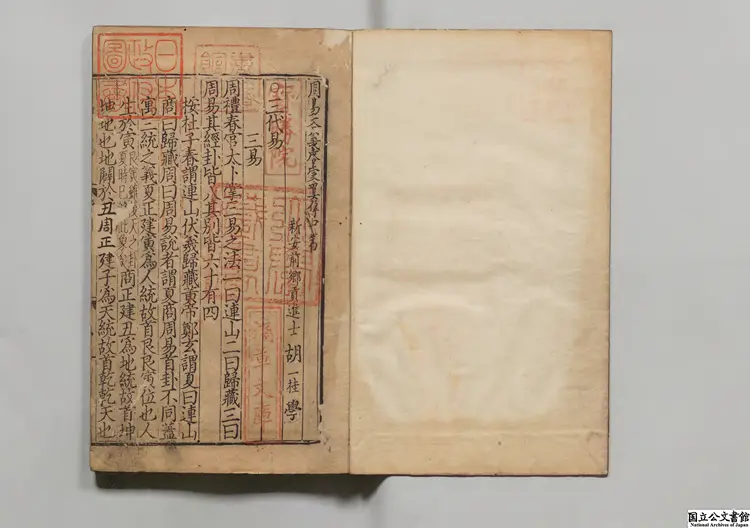 周易本義啓蒙翼傳
新安前鄉貢進士 胡 一桂 學
三代易
三易
周禮春官太卜掌三易之法一曰連山二曰歸藏三曰
周易其經卦皆八其別皆六十有四
按杜子春謂連山伏羲歸藏黃帝鄭玄謂夏曰連山
商曰歸藏周曰周易說者謂夏商周易首卦不同蓋
寓三統之義夏正建寅爲人統故首艮艮寅位也人
生於寅
商正建丑爲地統故首坤
坤地也地闢於丑周正建子爲天統故首乾乾天也
日本
政府
圖書
文庫
国立公文書館
National Archives of Japan